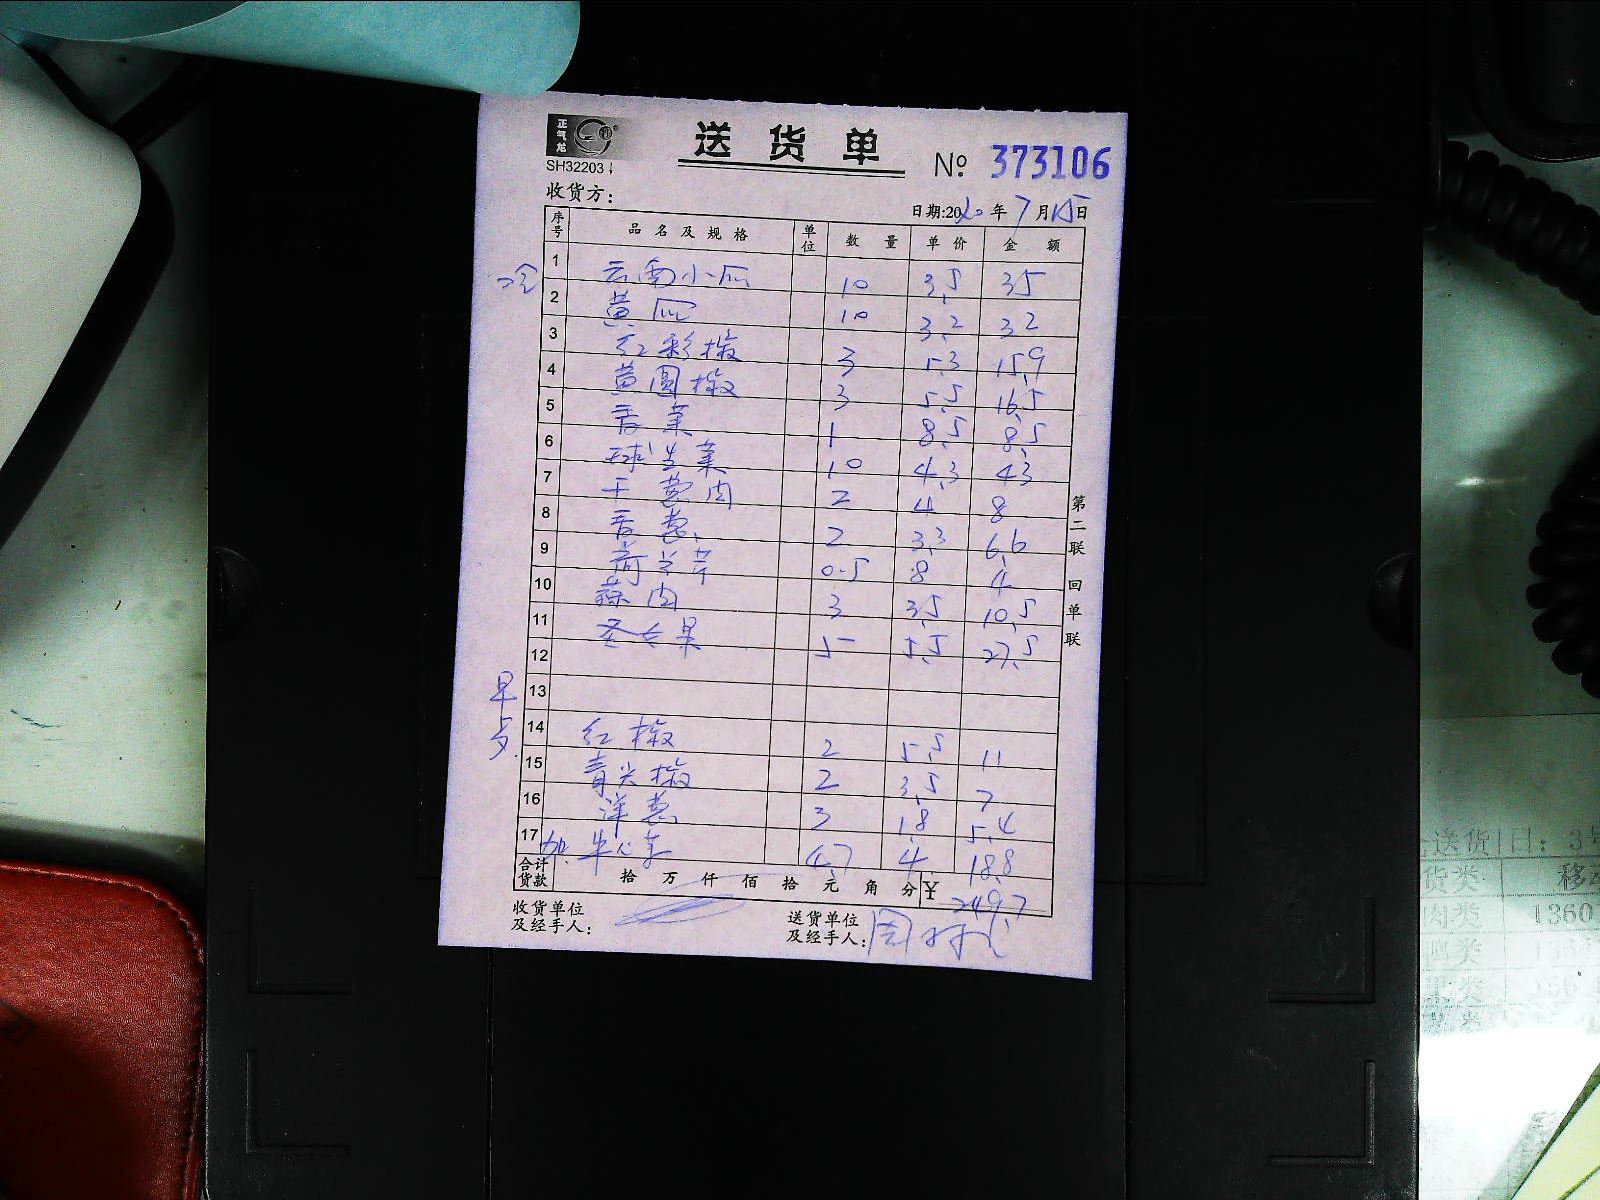 正气龙
送货单
SH32203
№ 373106
收货方：
日期:2020年7月15日
序号 品名及规格 单位 数量 单价 金额
冷
1 云南小瓜 10 3.5 35
2 黄瓜 10 3.2 32
3 红彩椒 3 5.3 15.9
4 黄圆椒 3 5.5 16.5
5 香菜 1 8.5 8.5
6 球生菜 10 4.3 43
7 干葱肉 2 4 8
8 香葱 2 3.3 6.6
9 荷兰芹 0.5 8 4
10 蒜肉 3 3.5 10.5
11 圣女果 5 5.5 27.5
12
早点
13
14 红椒 2 5.5 11
15 青尖椒 2 3.5 7
16 洋葱 3 1.8 5.4
17 加 牛心菜 4.7 4 18.8
合计货款 拾万仟佰拾元角分 ¥ 249.7
收货单位及经手人：
送货单位及经手人：
第二联 回单联
送货日：3号
货类 移动
肉类 1360